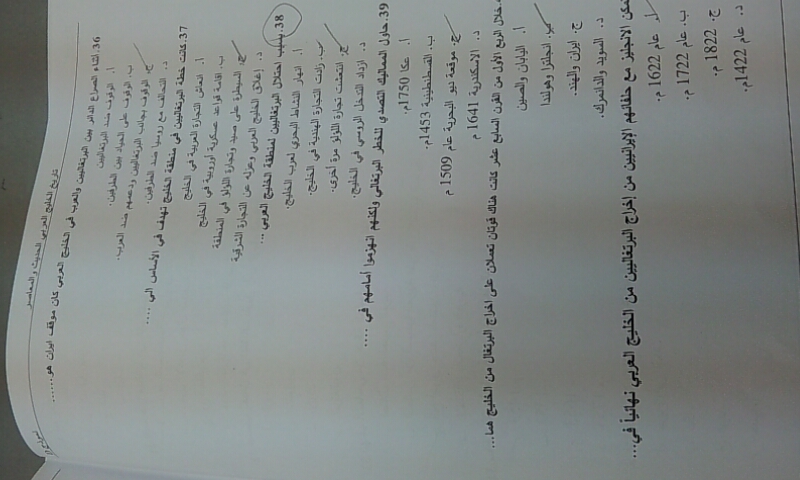 تاريخ الخليج العربي الحديث والمعاصر
36. اثناء الصراع الدائر بين البرتغاليين والعرب في الخليج العربي كان موقف ايران هو......
أ. الوقوف ضد البرتغاليين
ب. الوقوف على الحياد بين الطرفين.
ج. الوقوف بجانب البرتغاليين ودعمهم ضد العرب.
د. التحالف مع روسيا ضد الطرفين.
37. كانت خطة البرتغاليين في منطقة الخليج تهدف في الأساس الى ....
أ. انعاش التجارة العربية في الخليج
ب. اقامة قواعد عسكرية أوروبية في الخليج
ج. السيطرة على صيد وتجارة اللؤلؤ في المنطقة
د. إغلاق الخليج العربي وعزله عن التجارة الشرقية
38. بسبب احتلال البرتغاليين لمنطقة الخليج العربي ...
أ. انهار النشاط البحري لعرب الخليج.
ب. زادت التجارة الهندية في الخليج.
ج. انتعشت تجارة اللؤلؤ مرة أخرى.
د. ازداد التدخل الروسي في الخليج.
39. حاول المماليك التصدي للخطر البرتغالي ولكنهم انهزموا أمامهم في ....
أ. عكا 1750م.
ب. القسطنطينية 1453م.
ج. موقعة ديو البحرية عام 1509 م
د. الاسكندرية 1641 م
خلال الربع الأول من القرن السابع عشر كانت هناك قوتان تعملان على اخراج البرتغال من الخليج هما...
أ. اليابان والصين
ب. انجلترا وهولندا
ج. ايران والهند.
د. السويد والدانمرك.
تمكن الانجليز مع حلفائهم الإيرانيين من إخراج البرتغاليين من الخليج العربي نهائياً في...
أ. عام 1622 م.
ب. عام 1722 م.
ج. 1822 م.
د. عام 1422م.